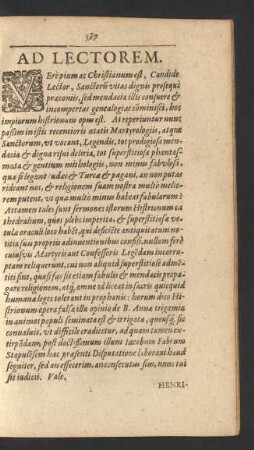 587
AD LECTOREM.
VErè pium ac Christianum est, Candide
Lector, Sanctorũ vitas dignis prosequi
præconiis, sed mendacia illis consuere &
incompertas genealogias cõminisci, hoc
impiorum histrionum opus est. At reperiuntur nunc
passim in istis recentioris ætatis Martyrologiis, atque
Sanctorum, vt vocant, Legendis, tot prodigiosa men-
dacia & digna risu deliria, tot superstitiosa phantas-
mata & gentium mithologiis, non minus fabulosa,
quæ si legant Iudæi & Turcæ & pagani, an non putas
rideant nos, & religionem suam nostra multo melio-
rem putent, vt qua multo minus habeat fabularum?
Attamen tales sunt sermones istorum Histrionum ca
thedralium, quos plebs imperita, & superstitiosa ve-
tula oraculi loco habẽt, qui defictæ antiquitatum no-
titia suis propriis adinuentionibus confisi, nullam ferè
cuiusuis Martyris aut Confessoris Legẽdam incorru-
ptam reliquerunt, cui non aliquid superstitiosè admo-
tiis sunt, quasi fas sit etiam fabulis & mendaciis propa-
gare religionem, atq́; omne id liceat in sacris quicquid
humana leges tolerant in prophanis: horum deo Hi-
strionum opera falsa illa opinio de B. Anna trigamia
in animos populi seminata est & irrigata, quousq́; sic
conualuit, vt difficile eradicetur, ad quam tamen ex-
tirpãdam, post doctissimum illum Iacobum Fabrum
Stapulẽsem hac præsenti Disputatione laborani haud
segniter, sed an effecerim, an consecutus sim, nunc tui
sit iudicii. Vale.
HENRI-